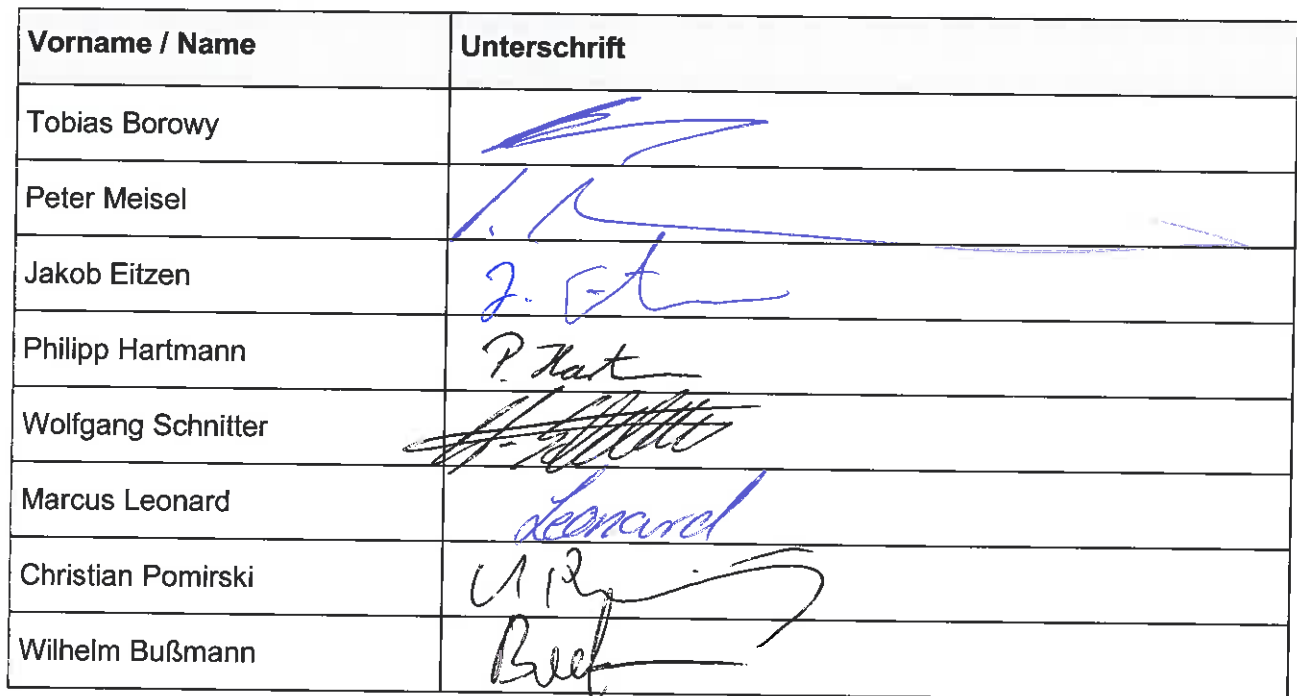 Vorname / Name Unterschrift
Tobias Borowy
Peter Meisel
Jakob Eitzen J.
Philipp Hartmann P. Hart
Wolfgang Schnitter
Marcus Leonard Leonard
Christian Pomirski
Wilhelm Bußmann